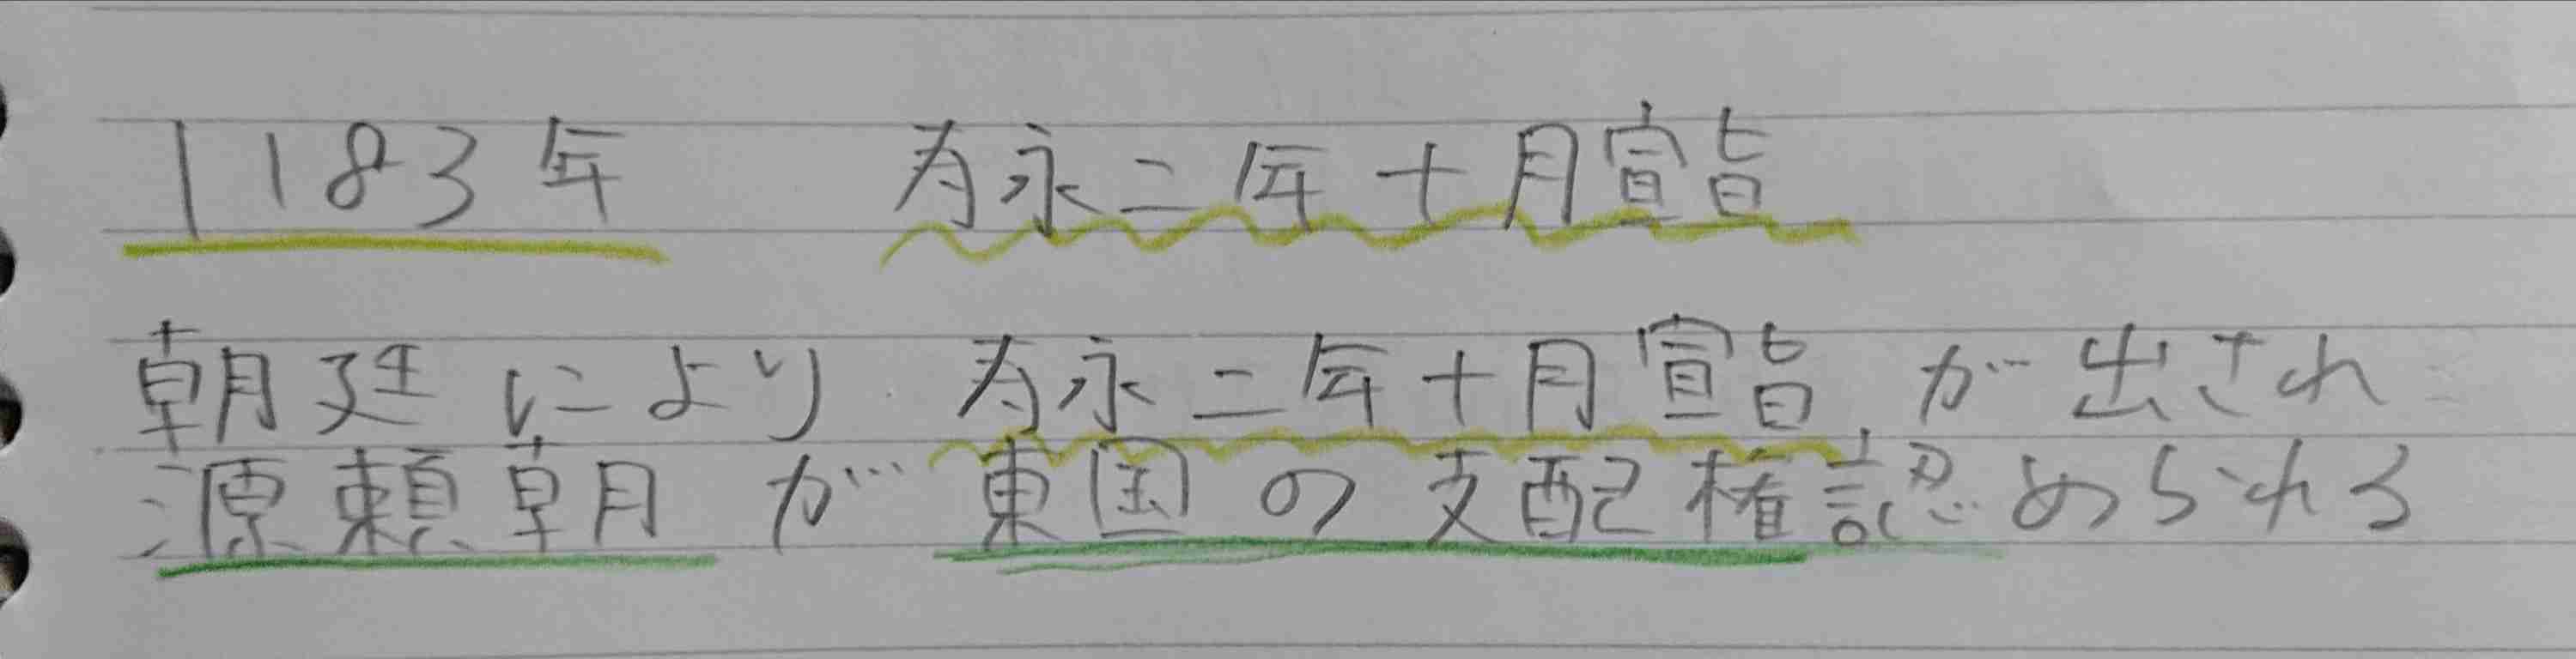 1183年 寿永二年十月宣旨
朝廷により 寿永二年十月宣旨が出され
源頼朝が東国の支配権認められる